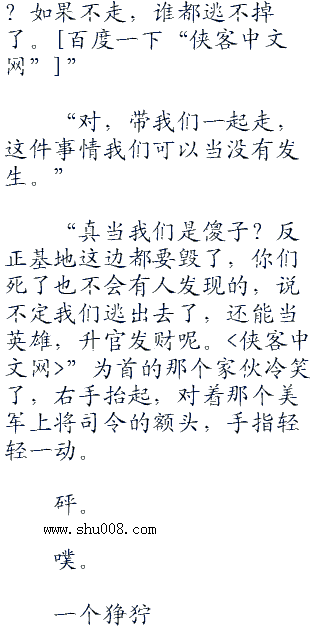 ？如果不走，谁都逃不掉
了。[百度一下“侠客中文
网”]”
“对，带我们一起走，
这件事情我们可以当没有发
生。”
“真当我们是傻子？反
正基地这边都要毁了，你们
死了也不会有人发现的，说
不定我们逃出去了，还能当
英雄，升官发财呢。<侠客中
文网>”为首的那个家伙冷笑
了，右手抬起，对着那个美
军上将司令的额头，手指轻
轻一动。
砰。
www.shu008.com
噗。
一个狰狞